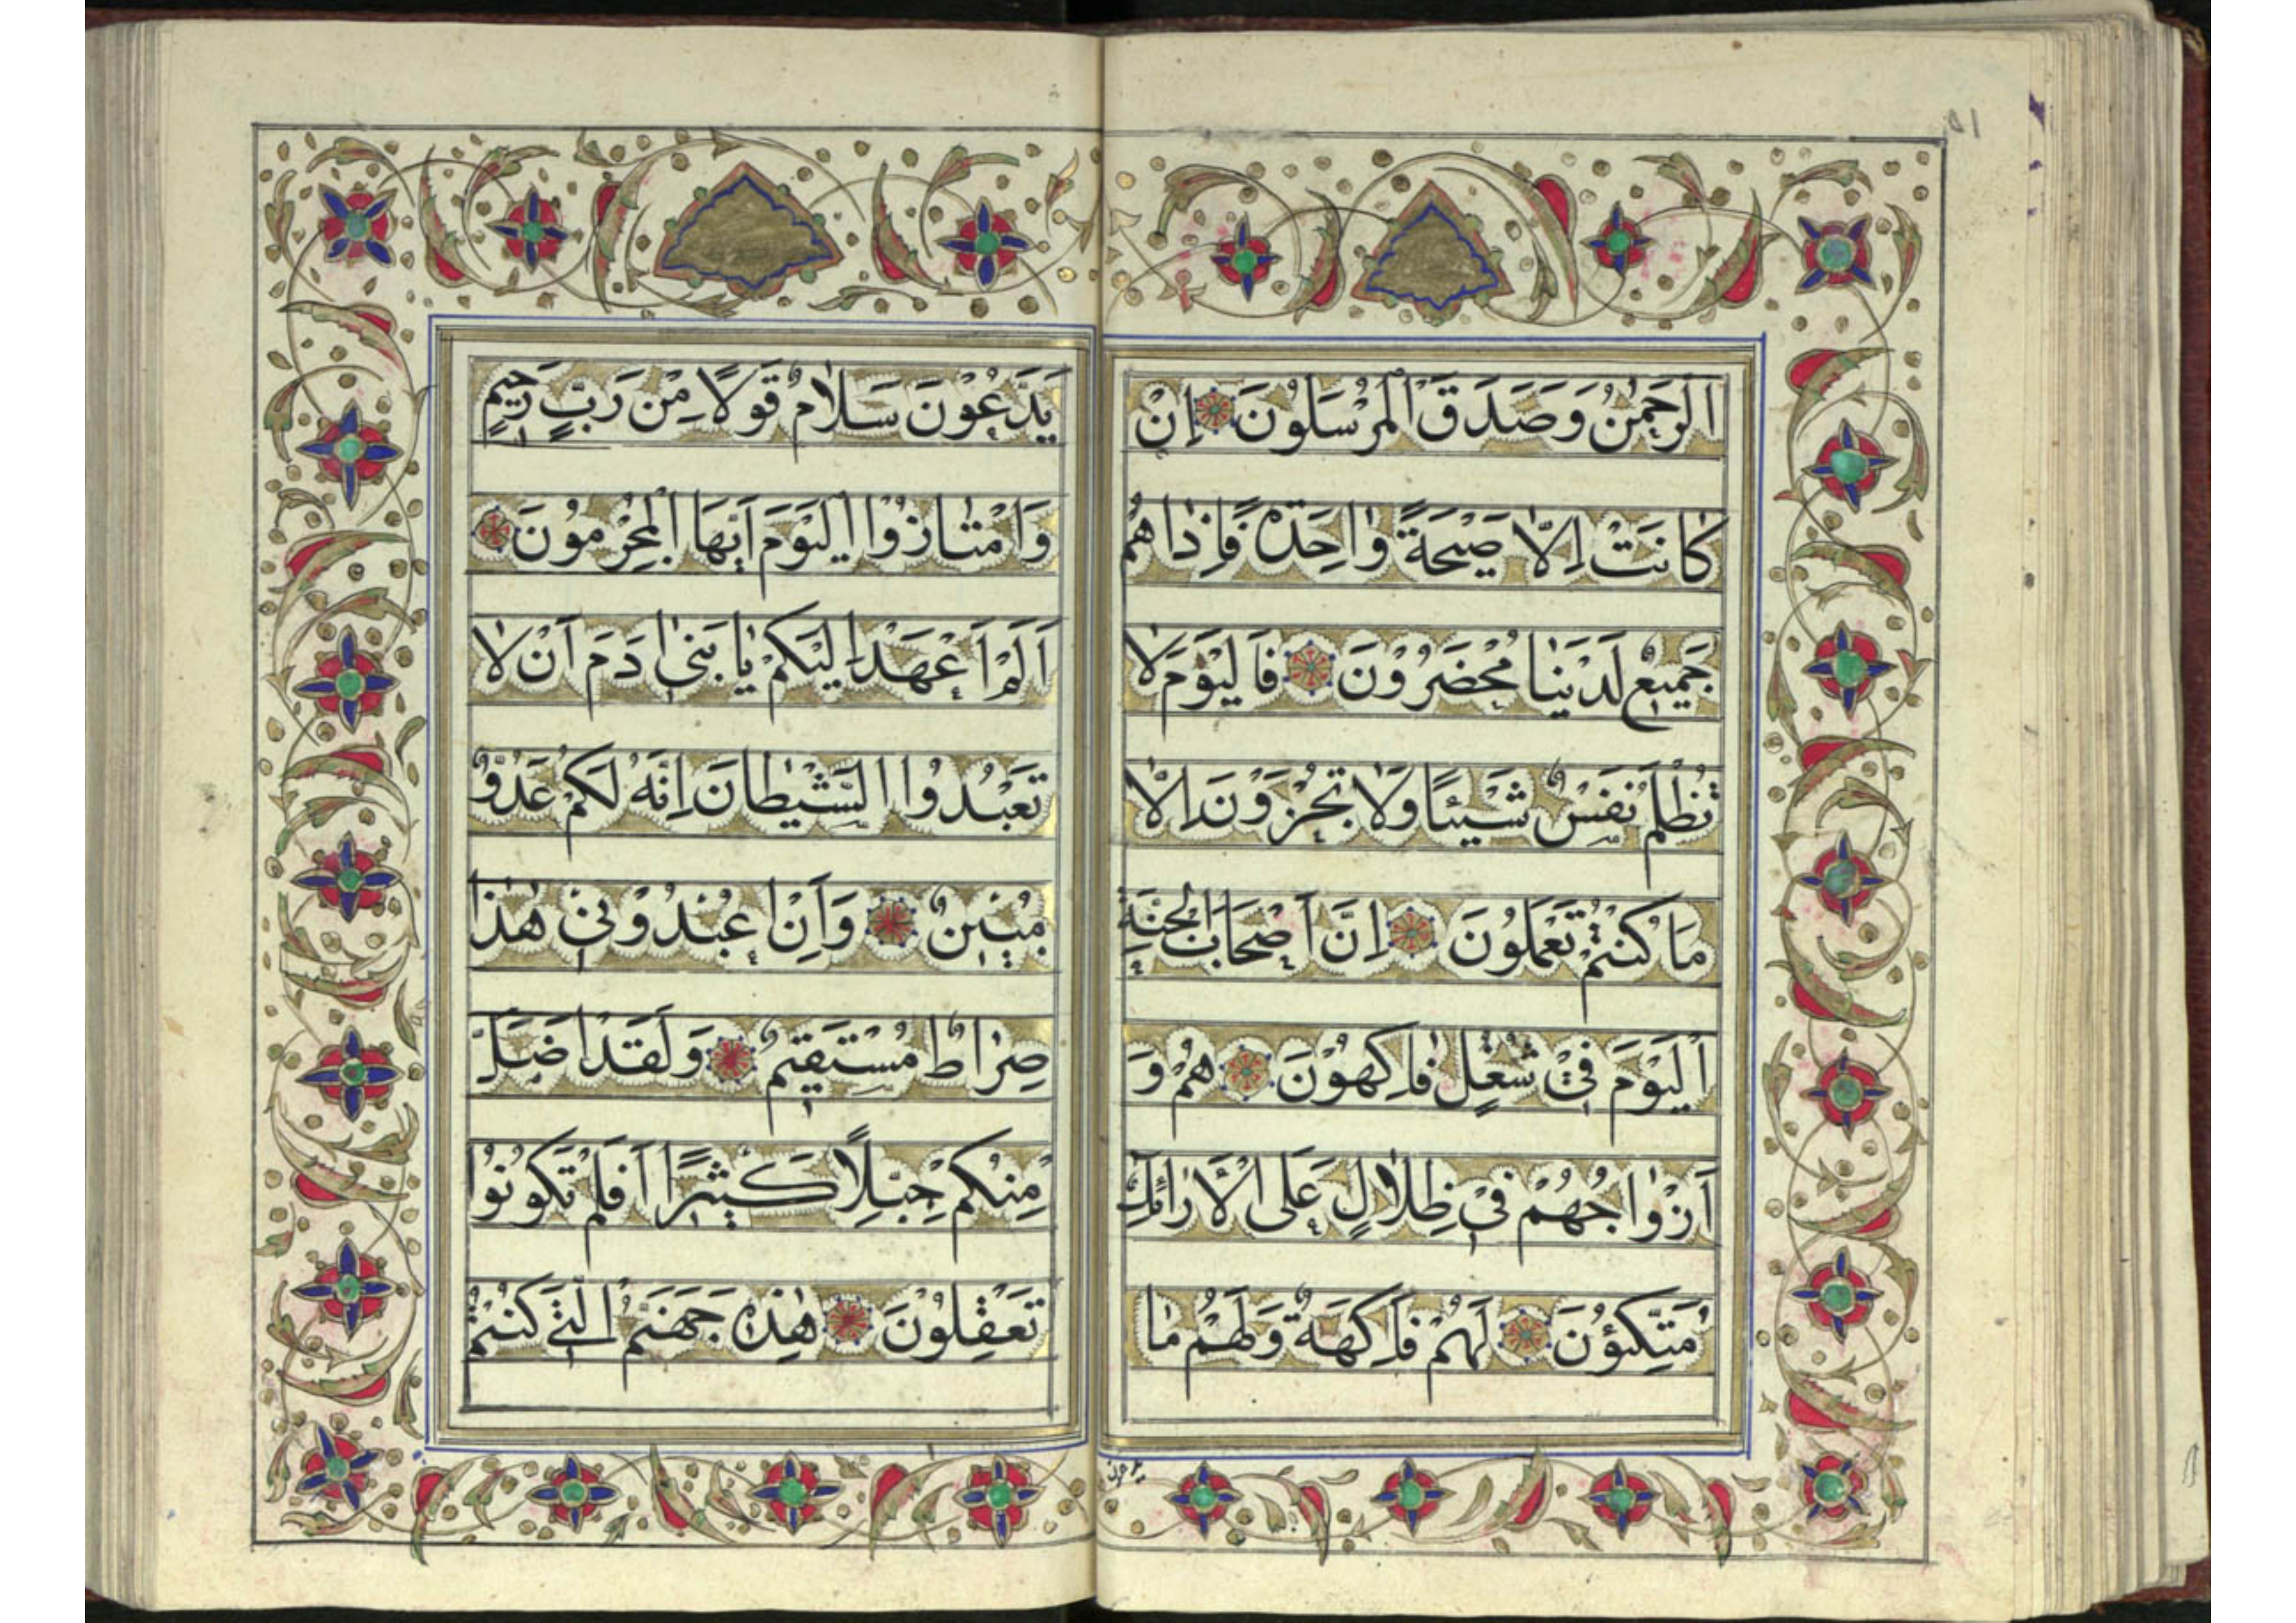 اَلرَّحْمٰنُ وَصَدَقَ الْمُرْسَلُونَ اِنْ
كٰانَتْ اِلّٰا صَيْحَةً وٰاحِدَةً فَاِذٰا هُمْ
جَمٖيعٌ لَدَيْنٰا مُحْضَرُوْنَ فَالْيَوْمَ لٰا
تُظْلَمُ نَفْسٌ شَيْئًا وَلٰا تُجْزَوْنَ اِلّٰا
مٰا كُنْتُمْ تَعْمَلُونَ اِنَّ اَصْحَابَ الْجَنَّةِ
اَلْيَوْمَ فٖيْ شُغُلٍ فٰاكِهُوْنَ هُمْ وَ
اَزْوٰاجُهُمْ فٖيْ ظِلٰالٍ عَلَى الْاَرٰائِكِ
مُتَّكِؤُنَ لَهُمْ فَاكِهَةٌ وَلَهُمْ مٰا
يدعون
يَدَّعُوْنَ سَلٰامٌ قَوْلًا مِنْ رَبٍّ رَحٖيمٍ
وَامْتٰازُوا الْيَوْمَ اَيُّهَا الْمُجْرِمُوْنَ
اَلَمْ اَعْهَدْ اِلَيْكُمْ يٰا بَنٖى اٰدَمَ اَنْ لٰا
تَعْبُدُوا الشَّيْطٰانَ اِنَّهُ لَكُمْ عَدُوٌّ
مُبٖينٌ وَاَنِ اعْبُدُوْنٖيْ هٰذٰا
صِرٰاطٌ مُسْتَقٖيمٌ وَلَقَدْ اَضَلَّ
مِنْكُمْ جِبِلًّا كَثٖيْرًا اَفَلَمْ تَكُوْنُوْا
تَعْقِلُوْنَ هٰذِهٖ جَهَنَّمُ الَّتٖيْ كُنْتُمْ